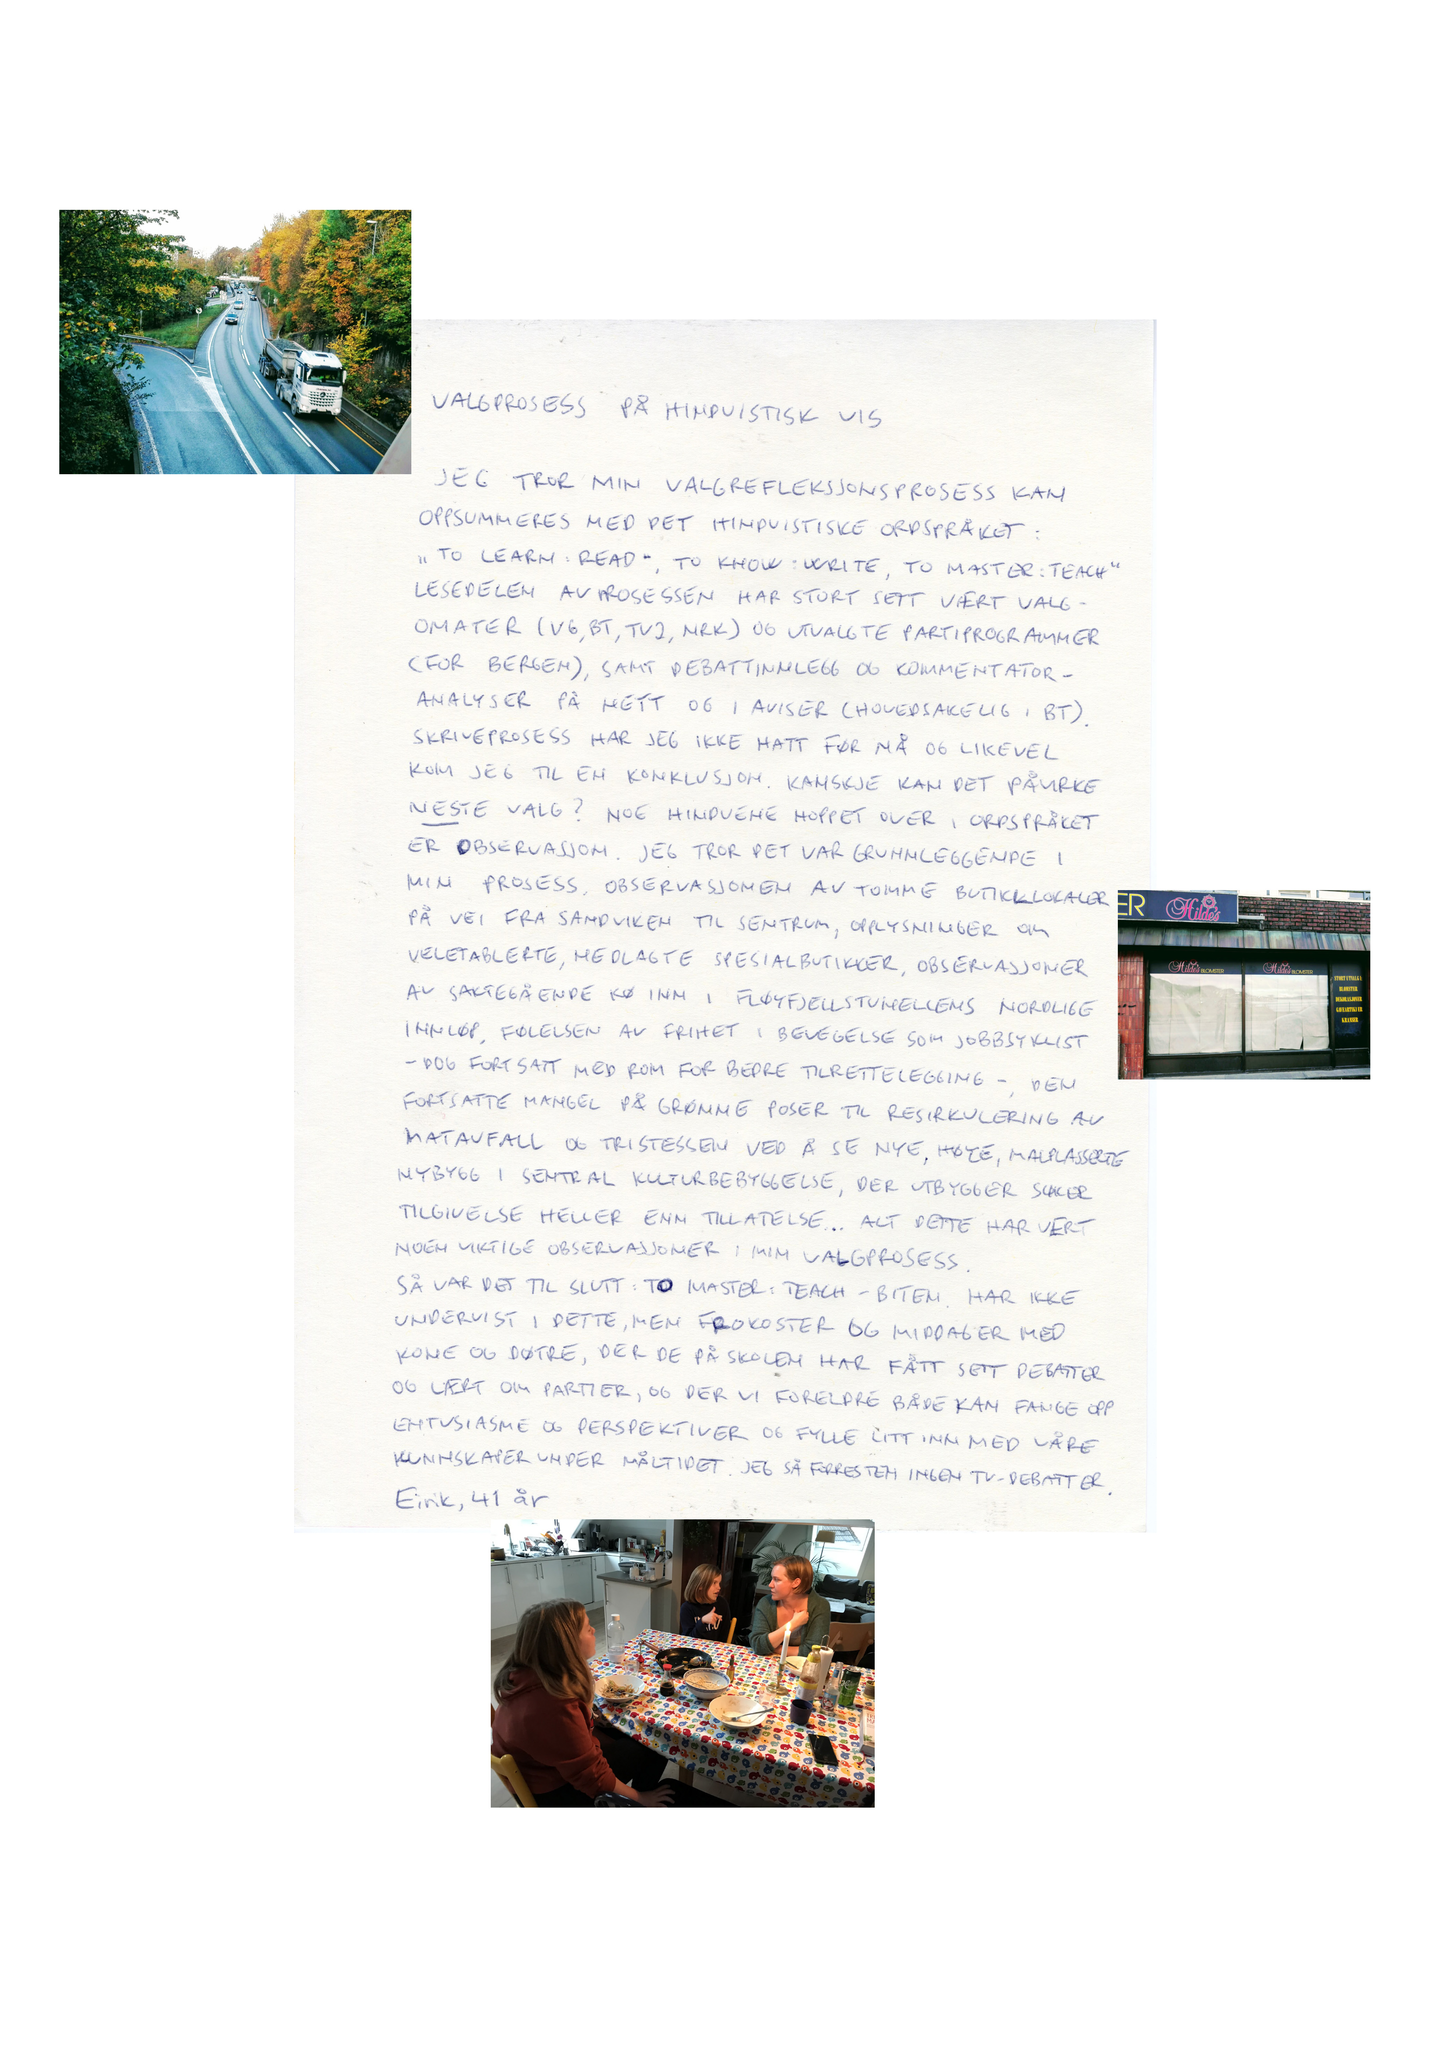 VALGPROSESS PÅ HINDUISTISK VIS
JEG TROR MIN VALGREFLEKSJONSPROSESS KAN
OPPSUMMERES MED DET HINDUISTISKE ORDSPRÅKET :
„TO LEARN : READ", TO KNOW : WRITE, TO MASTER : TEACH"
LESEDELEN AV PROSESSEN HAR STORT SETT VÆRT VALG-
OMATER (VG, BT, TV2, NRK) OG UTVALGTE PARTIPROGRAMMER
(FOR BERGEN), SAMT DEBATTINNLEGG OG KOMMENTATOR-
ANALYSER PÅ NETT OG I AVISER (HOVEDSAKELIG I BT).
SKRIVEPROSESS HAR JEG IKKE HATT FØR NÅ OG LIKEVEL
KOM JEG TIL EN KONKLUSJON. KANSKJE KAN DET PÅVIRKE
NESTE VALG? NOE HINDUENE HOPPET OVER I ORDSPRÅKET
ER OBSERVASJON. JEG TROR DET VAR GRUNNLEGGENDE I
MIN PROSESS. OBSERVASJONEN AV TOMME BUTIKKLOKALER
PÅ VEI FRA SANDVIKEN TIL SENTRUM, OPPLYSNINGER OM
VELETABLERTE, NEDLAGTE SPESIALBUTIKKER, OBSERVASJONER
AV SAKTEGÅENDE KØ INN I FLØYFJELLSTUNELLENS NORDLIGE
INNLØP, FØLELSEN AV FRIHET I BEVEGELSE SOM JOBBSYKLIST
- DOG FORTSATT MED ROM FOR BEDRE TILRETTELEGGING -, DEN
FORTSATTE MANGEL PÅ GRØNNE POSER TIL RESIRKULERING AV
MATAVFALL OG TRISTESSEN VED Å SE NYE, HØYE, MALPLASSERTE
NYBYGG I SENTRAL KULTURBEBYGGELSE, DER UTBYGGER SØKER
TILGIVELSE HELLER ENN TILLATELSE... ALT DETTE HAR VÆRT
NOEN VIKTIGE OBSERVASJONER I MIN VALGPROSESS.
SÅ VAR DET TIL SLUTT : TO MASTER : TEACH - BITEN. HAR IKKE
UNDERVIST I DETTE, MEN FROKOSTER OG MIDDAGER MED
KONE OG DØTRE, DER DE PÅ SKOLEN HAR FÅTT SETT DEBATTER
OG LÆRT OM PARTIER, OG DER VI FORELDRE BÅDE KAN FANGE OPP
ENTUSIASME OG PERSPEKTIVER OG FYLLE LITT INN MED VÅRE
KUNNSKAPER UNDER MÅLTIDET. JEG SÅ FORRESTEN INGEN TV-DEBATTER.
Eirik, 41 år
ER Hildes
Hildes BLOMSTER Hildes BLOMSTER
STORT UTVALG I
BLOMSTER
DEKORASJONER
GAVEARTIKLER
KRANSER